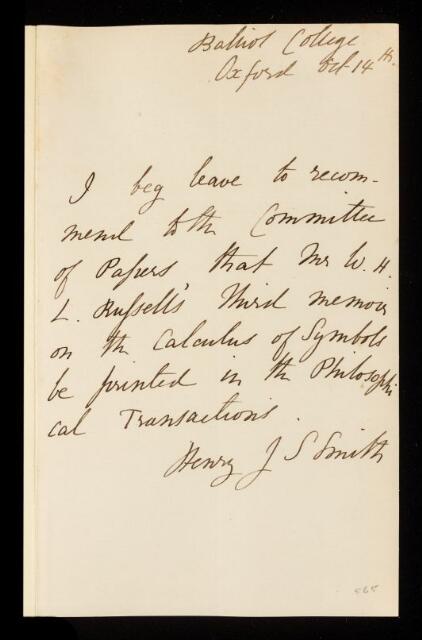 Balliol College
Oxford Oct 14th.
I beg leave to recom-
mend to the Committee
of Papers that Mr W. H.
L. Russell's Third memoir
on the Calculus of Symbols
be printed in the Philosophi
cal Transactions.
Henry J S Smith